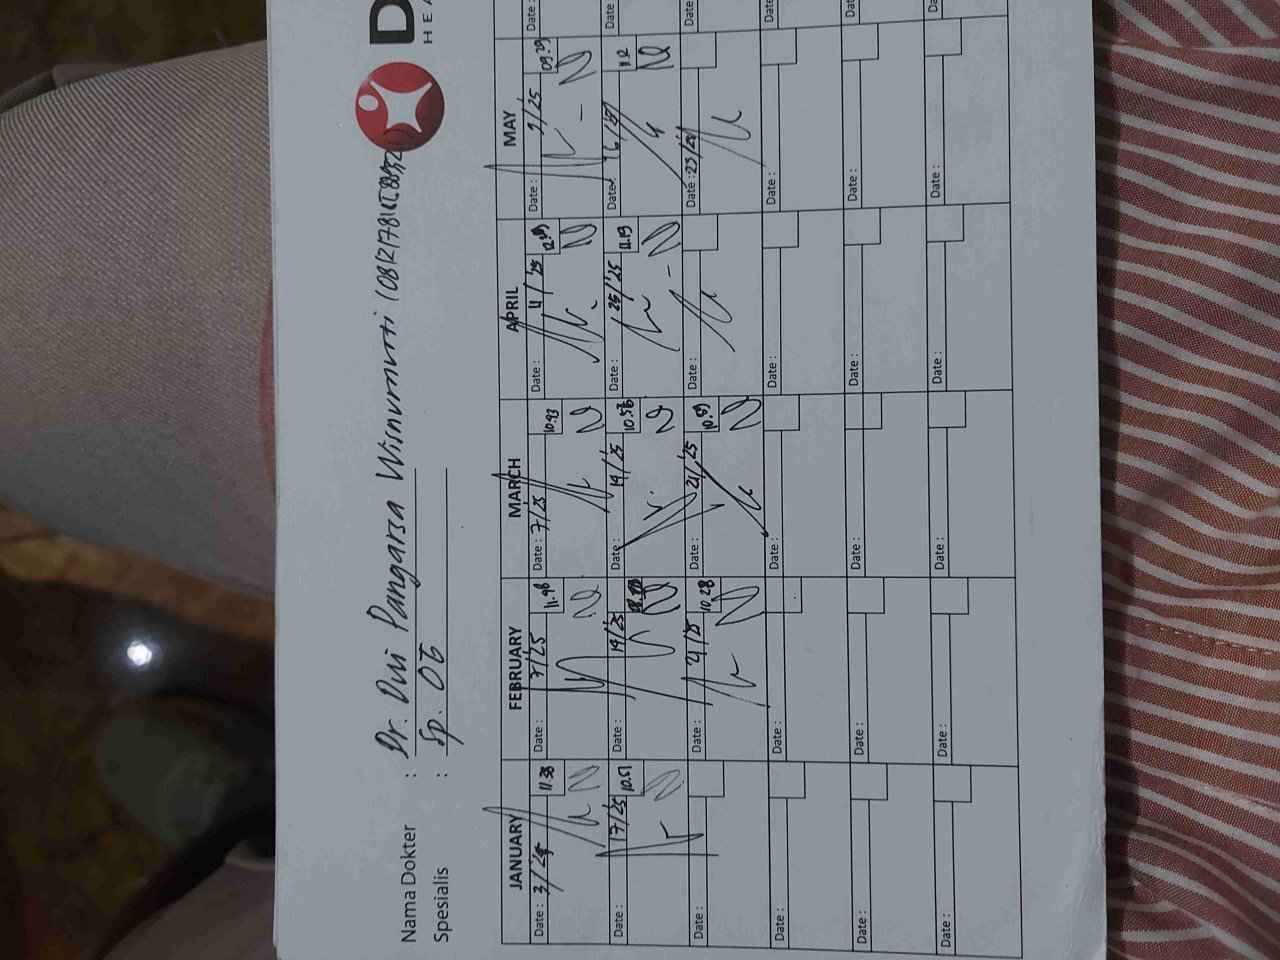 D
HEA
Nama Dokter : Dr. Dwi Pangarsa Wisnumurti
Spesialis : Sp. OG
JANUARY FEBRUARY MARCH APRIL MAY
Date : 3/25 Date : 7/25 Date : 7/25 Date : 11/'25 Date : 9/25 Date :
11.38 11.48 10.43 09.29
Date : 17/25 Date : 14/25 Date : 14/25 Date : 25/'25 Date : 16/25 Date :
10.51 10.56 11.19 11.12
Date : Date : 21/25 Date : 21/25 Date : Date : 23/25 Date :
10.28 10.59
Date : Date : Date : Date : Date : Date
Date : Date : Date : Date : Date : Dat
Date : Date : Date : Date : Date : Da